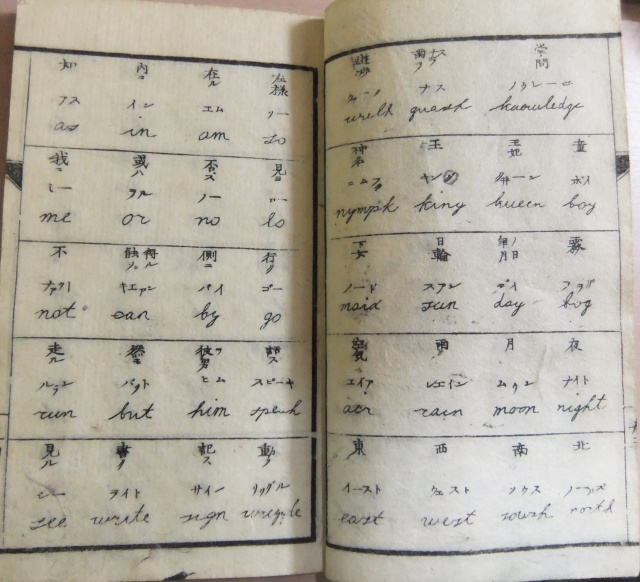 学問 knowledge
ナス quash
童 ボイ boy
王妃 kueen
王 キング king
神名 ニムフ nymph
霧 フヲグ bog
日 デイ day
日輪 スアン sun
下女 maid
夜 ナイト night
月 ムウン moon
雨 レエイン rain
空気 エイア air
北 ノーフス north
南 ソウス south
西 ウェスト west
東 イースト east
左様 ソー so
在ル エム am
内ニ イン in
知 アス as
見ヨ ロー lo
否ス ノー no
或ハ ヲル or
我ニ ミー me
行ク ゴー go
側ニ バイ by
得ル キエアン can
不 ナアット not
話ス スピーキ speak
彼男ヲ ヒム him
然ニ バット but
走ル ルアン run
動ク リッグル wriggle
記ス サイン sign
書ク ライト write
見ル シー see